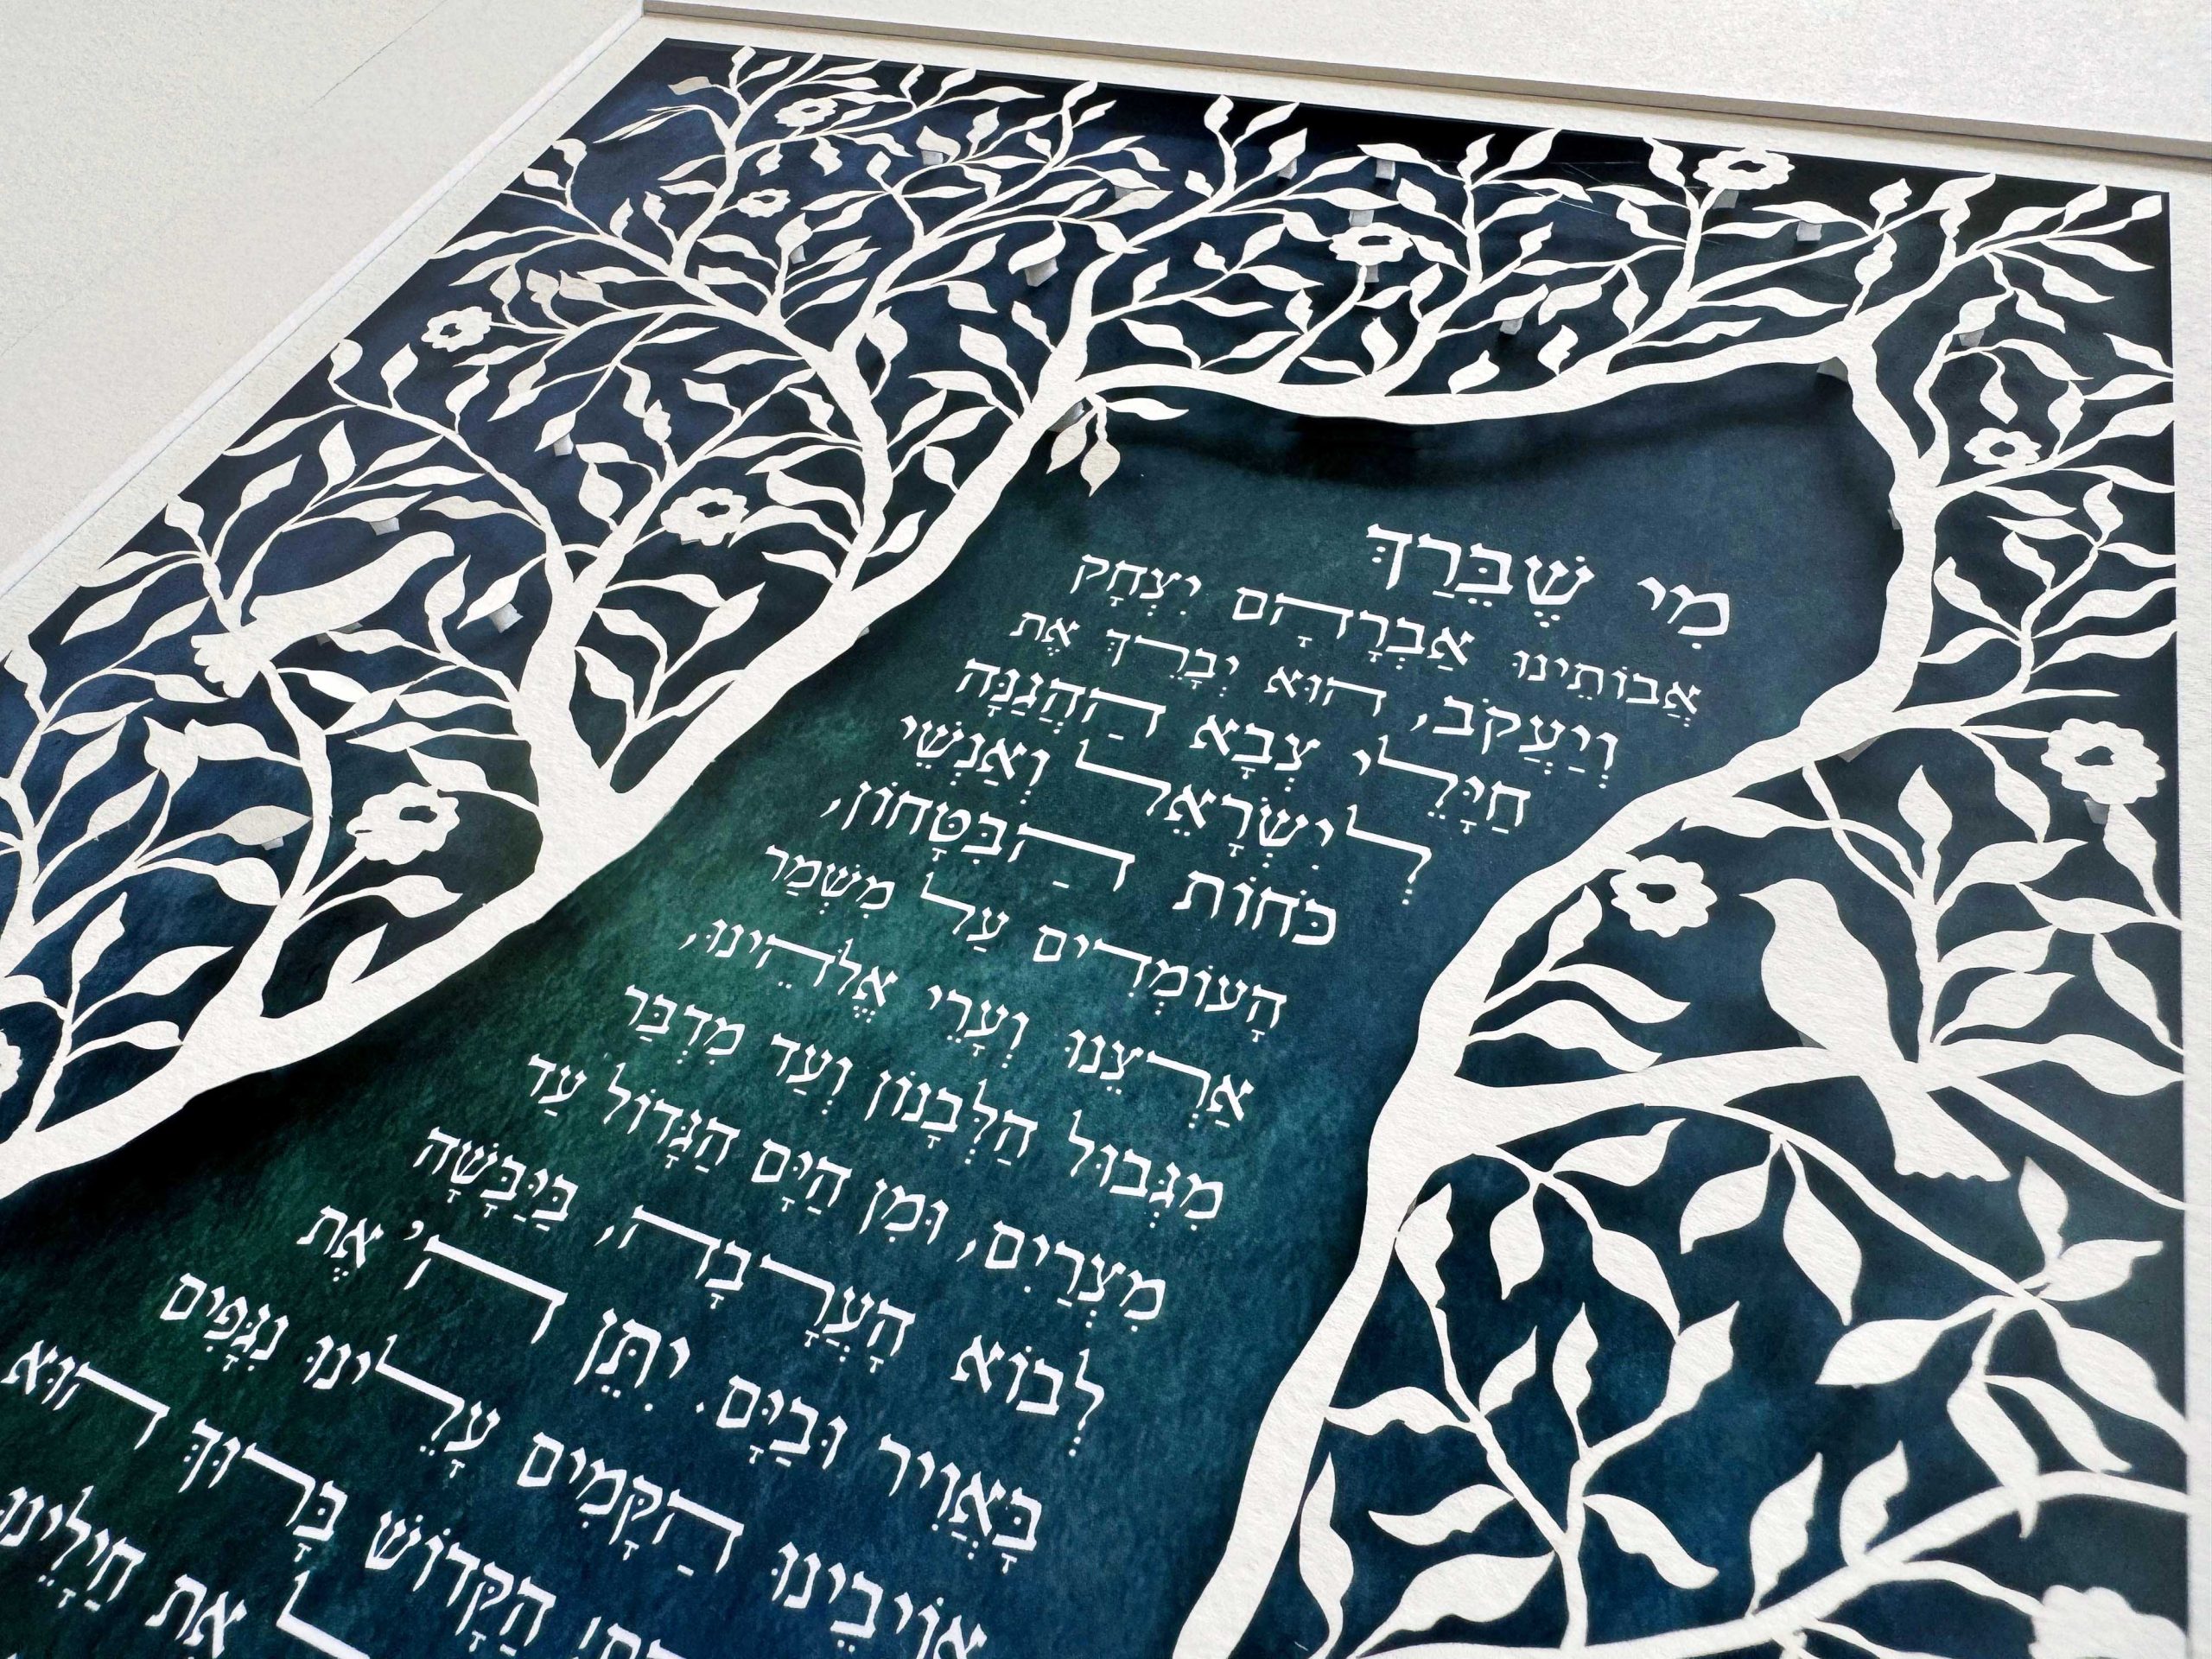 מִי שֶׁבֵּרַךְ
אֲבוֹתֵינוּ אַבְרָהָם יִצְחָק
וְיַעֲקֹב, הוּא יְבָרֵךְ אֶת
חַיָּלֵי צְבָא הַהֲגַנָּה
לְיִשְׂרָאֵל וְאַנְשֵׁי
כֹּחוֹת הַבִּטָּחוֹן,
הָעוֹמְדִים עַל מִשְׁמַר
אַרְצֵנוּ וְעָרֵי אֱלֹהֵינוּ,
מִגְּבוּל הַלְּבָנוֹן וְעַד מִדְבַּר
מִצְרַיִם, וּמִן הַיָּם הַגָּדוֹל עַד
לְבוֹא הָעֲרָבָה, בַּיַּבָּשָׁה
בָּאֲוִיר וּבַיָּם. יִתֵּן ה' אֶת
אוֹיְבֵינוּ הַקָּמִים עָלֵינוּ נִגָּפִים
הַקָּדוֹשׁ בָּרוּךְ הוּא
אֶת חַיָלֵינוּ